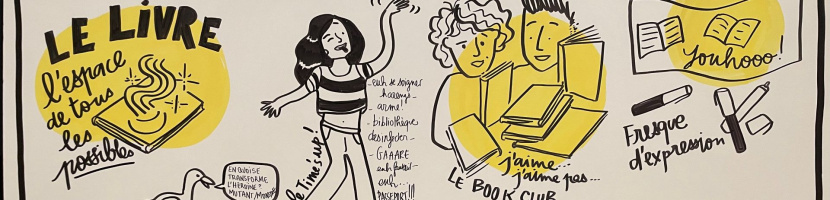 LE LIVRE
l'espace
de tous
les
possibles
EN QUOI SE
TRANSFORME
L'HÉROÏNE?
MUTANT/MONSTRE
le Time's up!
-euh se soigner
-arme!
-bibliothèque
-GAAARE
euh
PASSEPORT!!!
j'aime...
j'aime pas...
LE BOOK CLUB
Youhooo!
Fresque
d'expression